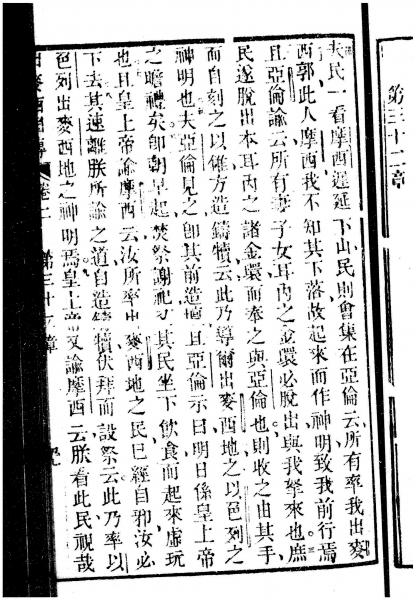 第三十二章
夫民一看摩西遲延下山民則會集在亞倫云所有率我出麥
西郭此人摩西我不知其下落故起來而作神明致我前行焉
且亞倫諭云所有妻子女耳內之金環必脫出與我挐來也庶
民遂脫出本耳內之諸金環而奉之與亞倫也則收之由其手
而自刻之以錐方造鑄犢云此乃導爾出麥西地之以色列之
神明也夫亞倫見之卽其前造壇且亞倫示曰明日係皇上帝
之瞻禮矣卽朝早起焚祭謝祀其民坐下飲食而起來虛玩
也且皇上帝諭摩西云汝所率出麥西地之民已經自邪汝必
下去其速離朕所諭之道自造鑄犢伏拜而設祭云此乃率以
色列出麥西地之神明焉皇上帝又諭摩西云朕看此民視哉
麥西國傳 卷二 第三十二章